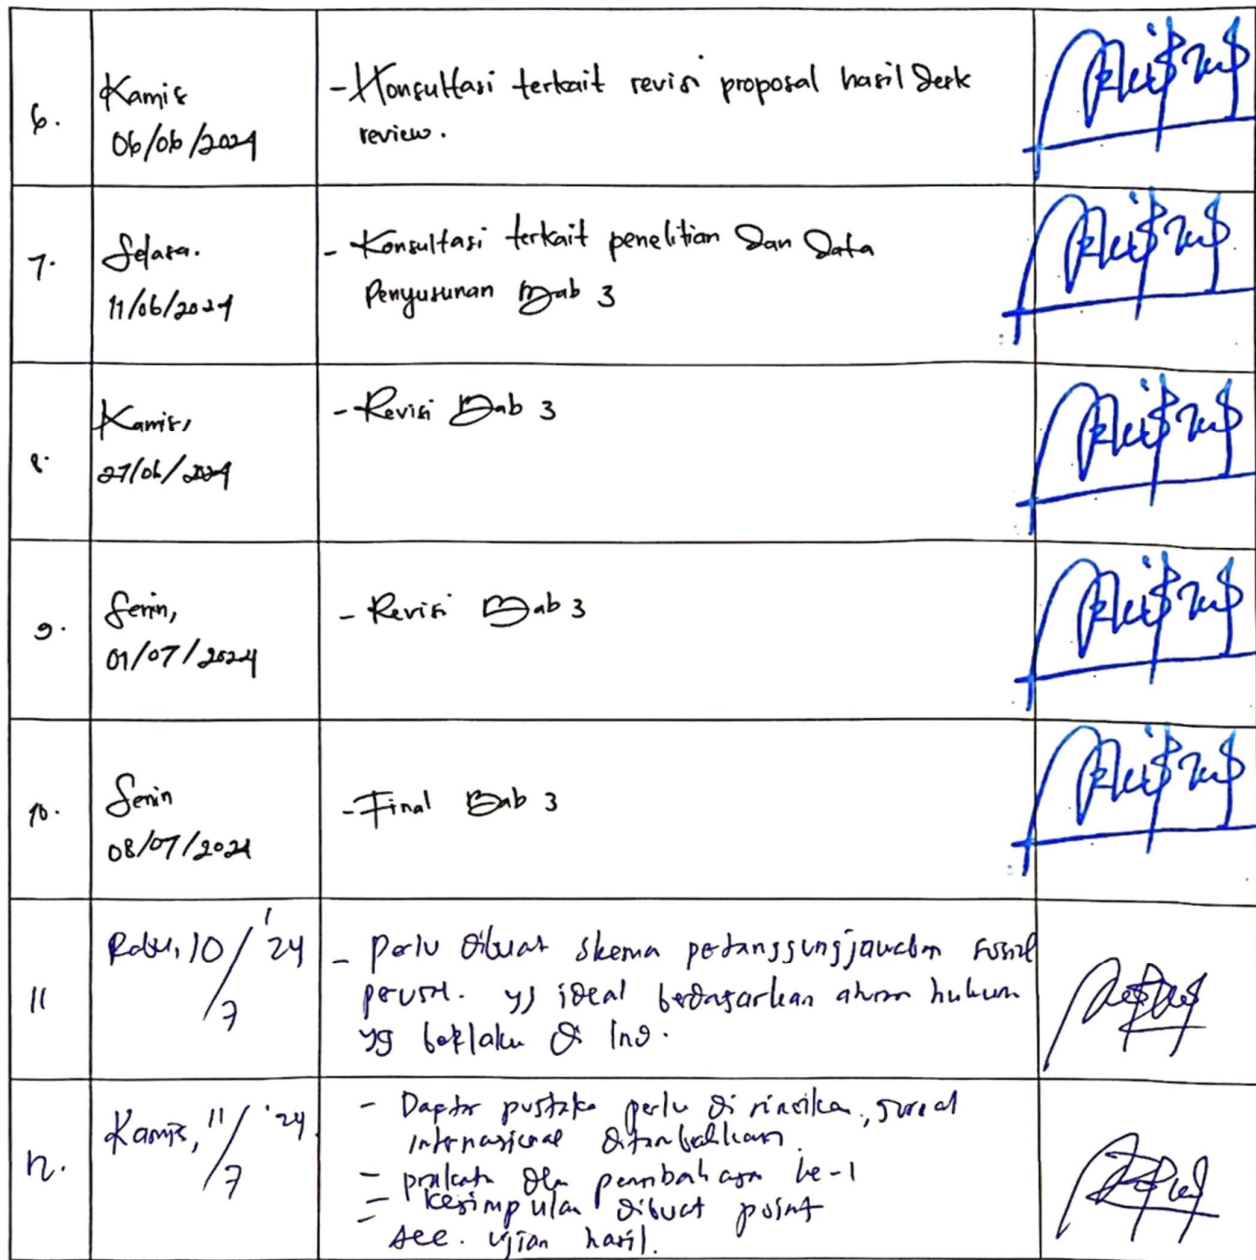 6.
Kamis
06/06/2024
- Konsultasi terkait revisi proposal hasil desk
review.
7.
Selasa.
11/06/2024
- Konsultasi terkait penelitian dan data
Penyusunan Bab 3
8.
Kamis,
27/06/2024
- Revisi Bab 3
9.
Senin,
01/07/2024
- Revisi Bab 3
10.
Senin
08/07/2024
- Final Bab 3
11
Rabu, 10/7 '24
- perlu dibuat skema pertanggungjawaban sosial
perush. yg ideal berdasarkan aturan hukum
yg berlaku di Ind.
12.
Kamis, 11/7 '24
- Daftar pustaka perlu di
internasional ditambahkan
- pembahasan ke-1
- Kesimpulan dibuat point
Acc. ujian hasil.